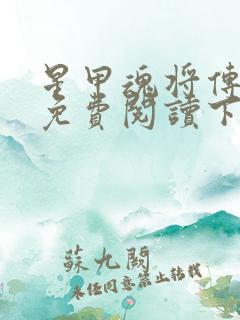 星甲魂将傳
免費閱讀下
蘇九闕
未經同意禁止轉載